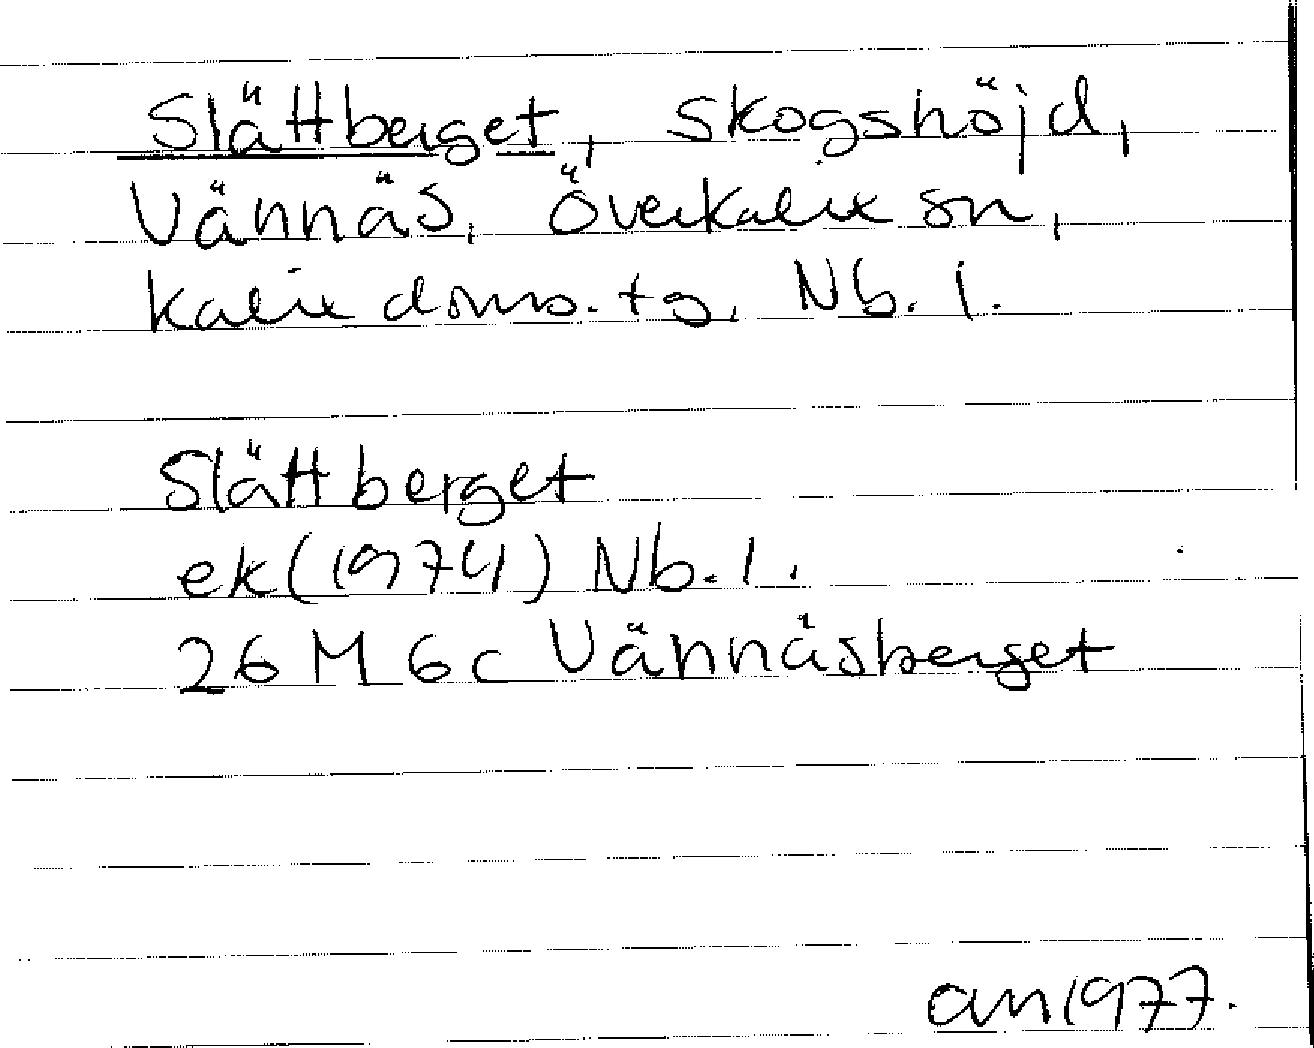 Slättberget, skogshöjd,
Vännäs, Överkalix sn,
Kalix doms. tg, Nb. l.
Slättberget
ek (1974) Nb. l.
26 M 6c Vännäsberget
an 1977.